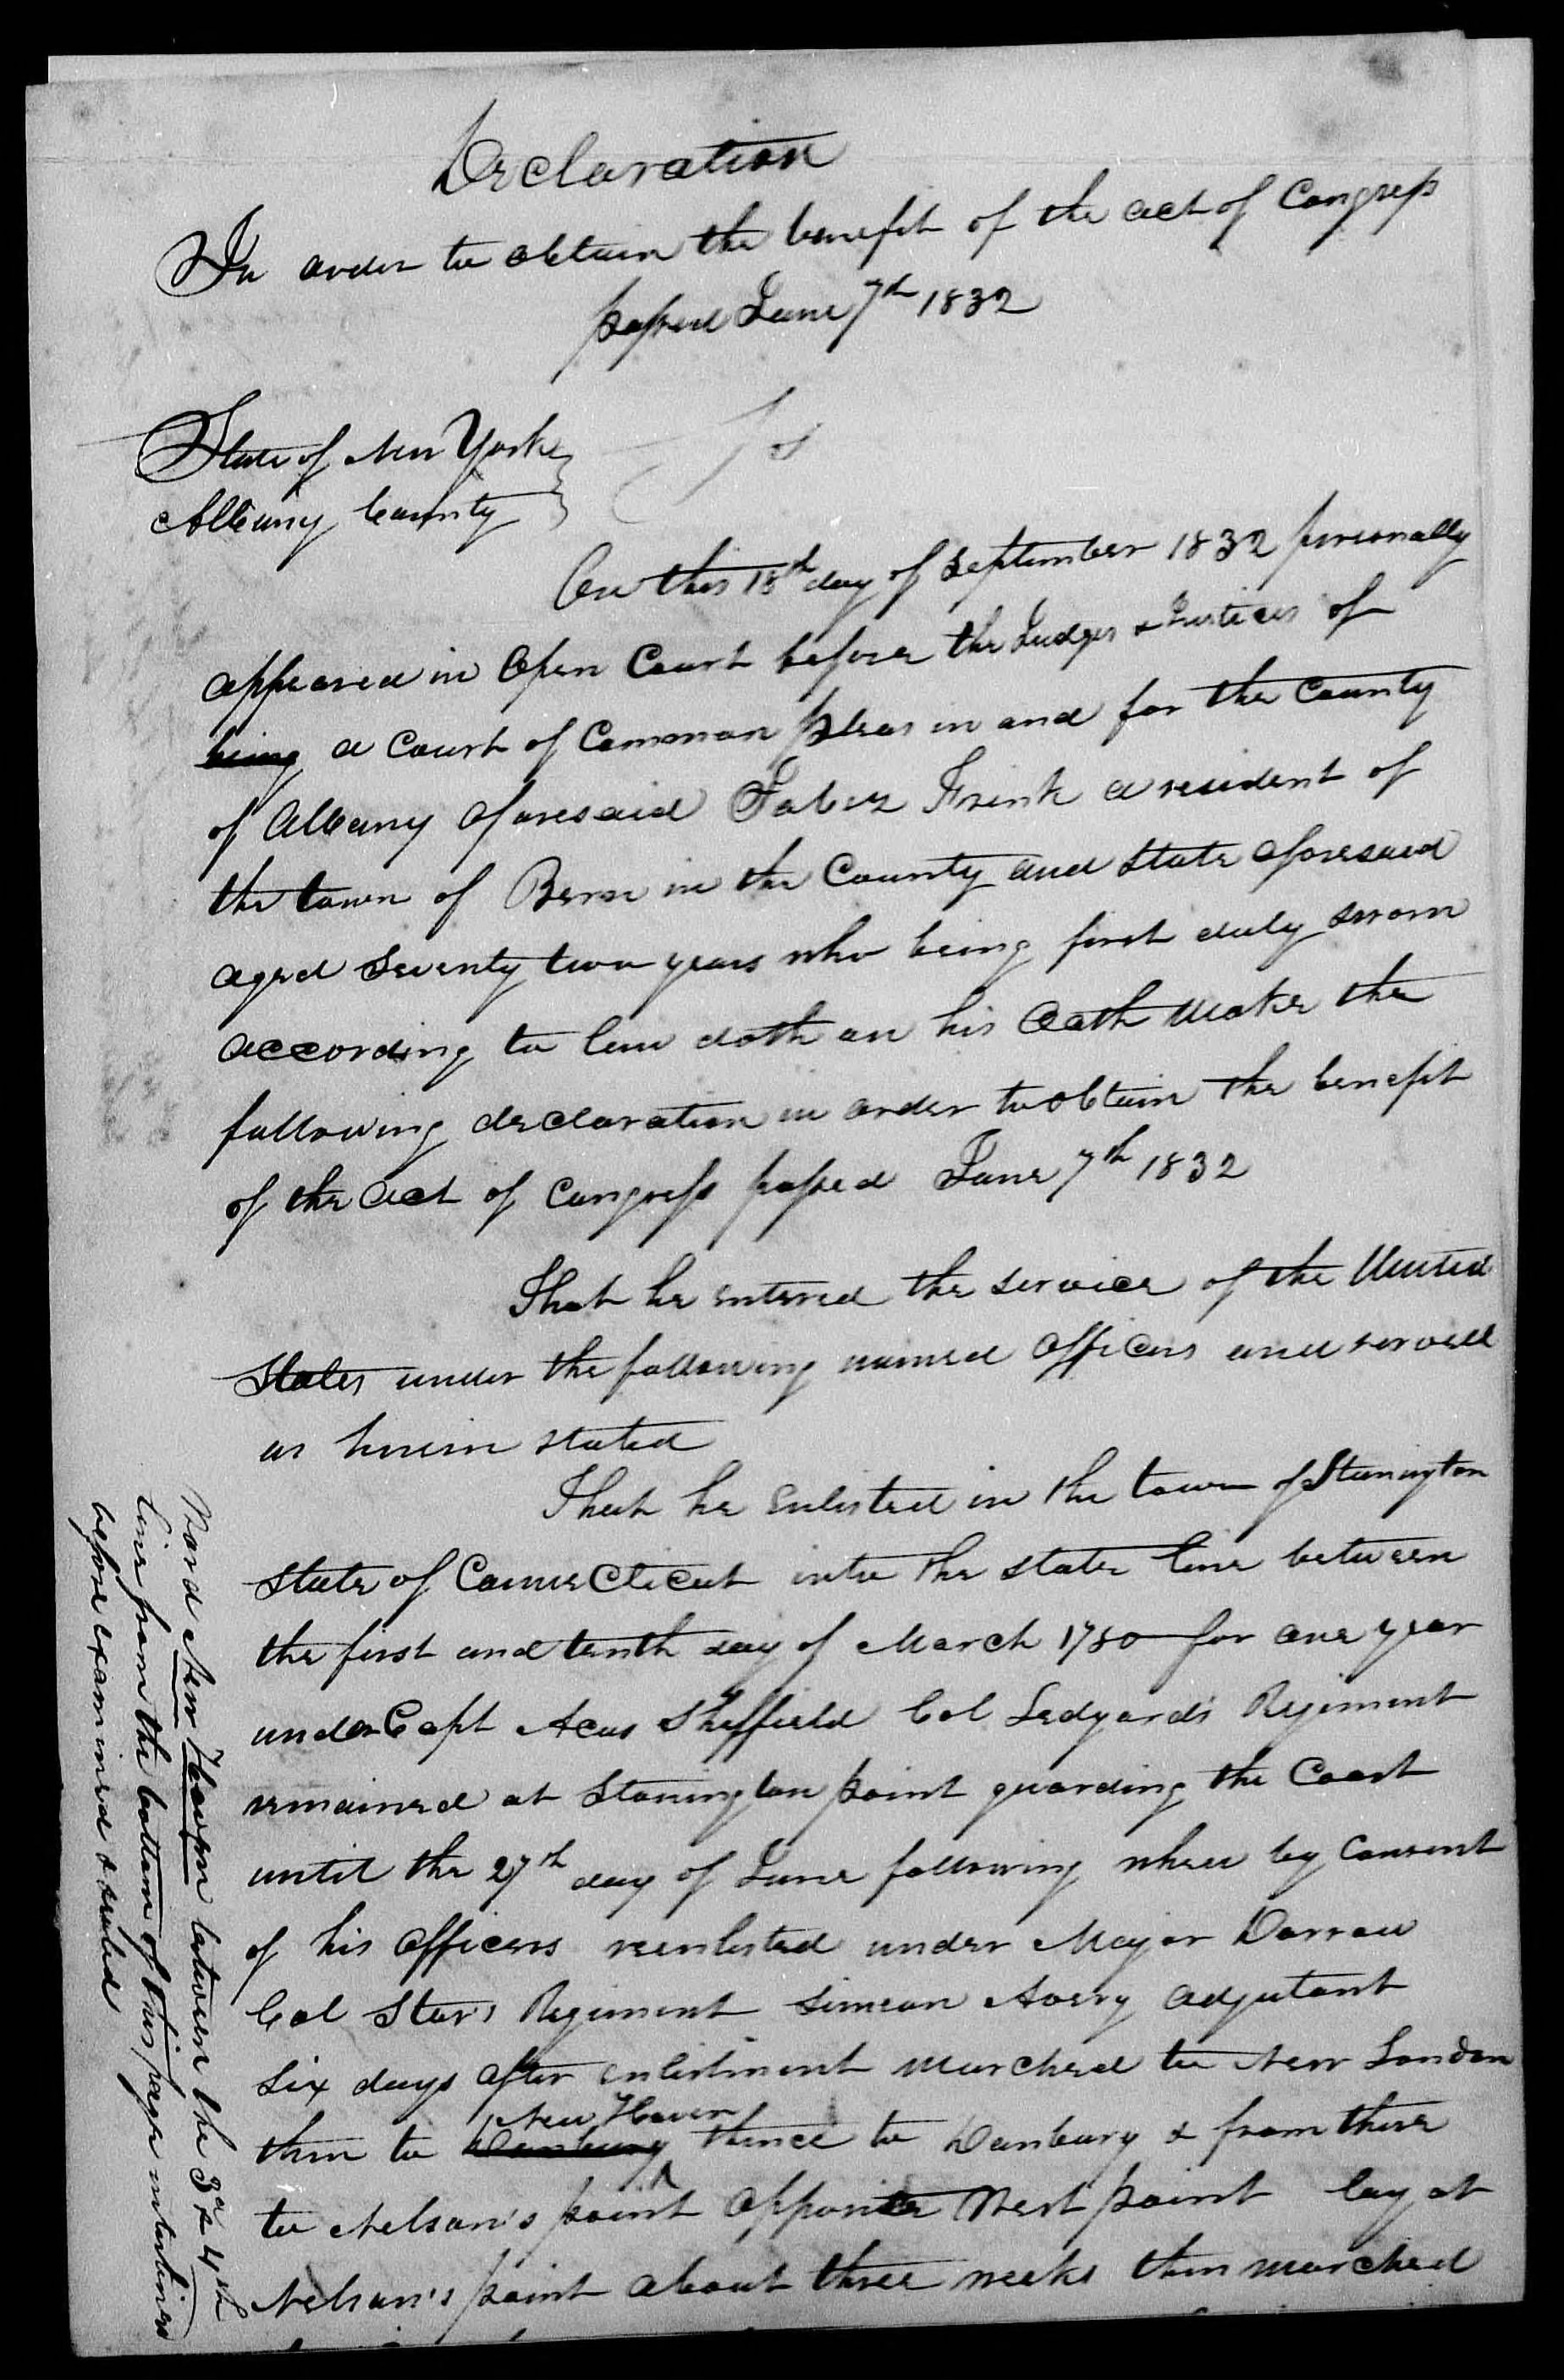 Declaration
In order to obtain the benefit of the act of Congress
passed June 7th 1832
State of New York
Albany County
ss
On this 18th day of September 1832 personally
appeared in Open Court before the Judges & Justices of
being a Court of Common pleas in and for the County
of Albany aforesaid Jabez Frink a resident of
the town of Bern in the County and State aforesaid
aged Seventy two years who being first duly sworn
according to law doth on his Oath Make the
following declaration in order to obtain the benefit
of the Act of Congress passed June 7th 1832
That he entered the service of the United
States under the following named Officers and served
as herein stated
That he Enlisted in the town of Stonington
State of Connecticut into the state line between
the first and tenth day of March 1780 for one year
under Capt Acus Sheffield Col Ledyard's Regiment
remained at Stonington point guarding the Coast
until the 27th day of June following when by Consent
of his Officers reenlisted under Major Darrow
Col Star's Regiment Simeon Avery adjutant
Six days after enlistment marched to New London
then to Danbury New Haven thence to Danbury & from there
to Nelson's point opposite West point lay at
Nelson's point about three weeks then marched
Word New Haven between the 3d & 4th
line from the bottom of this page interlined
before examined & sealed